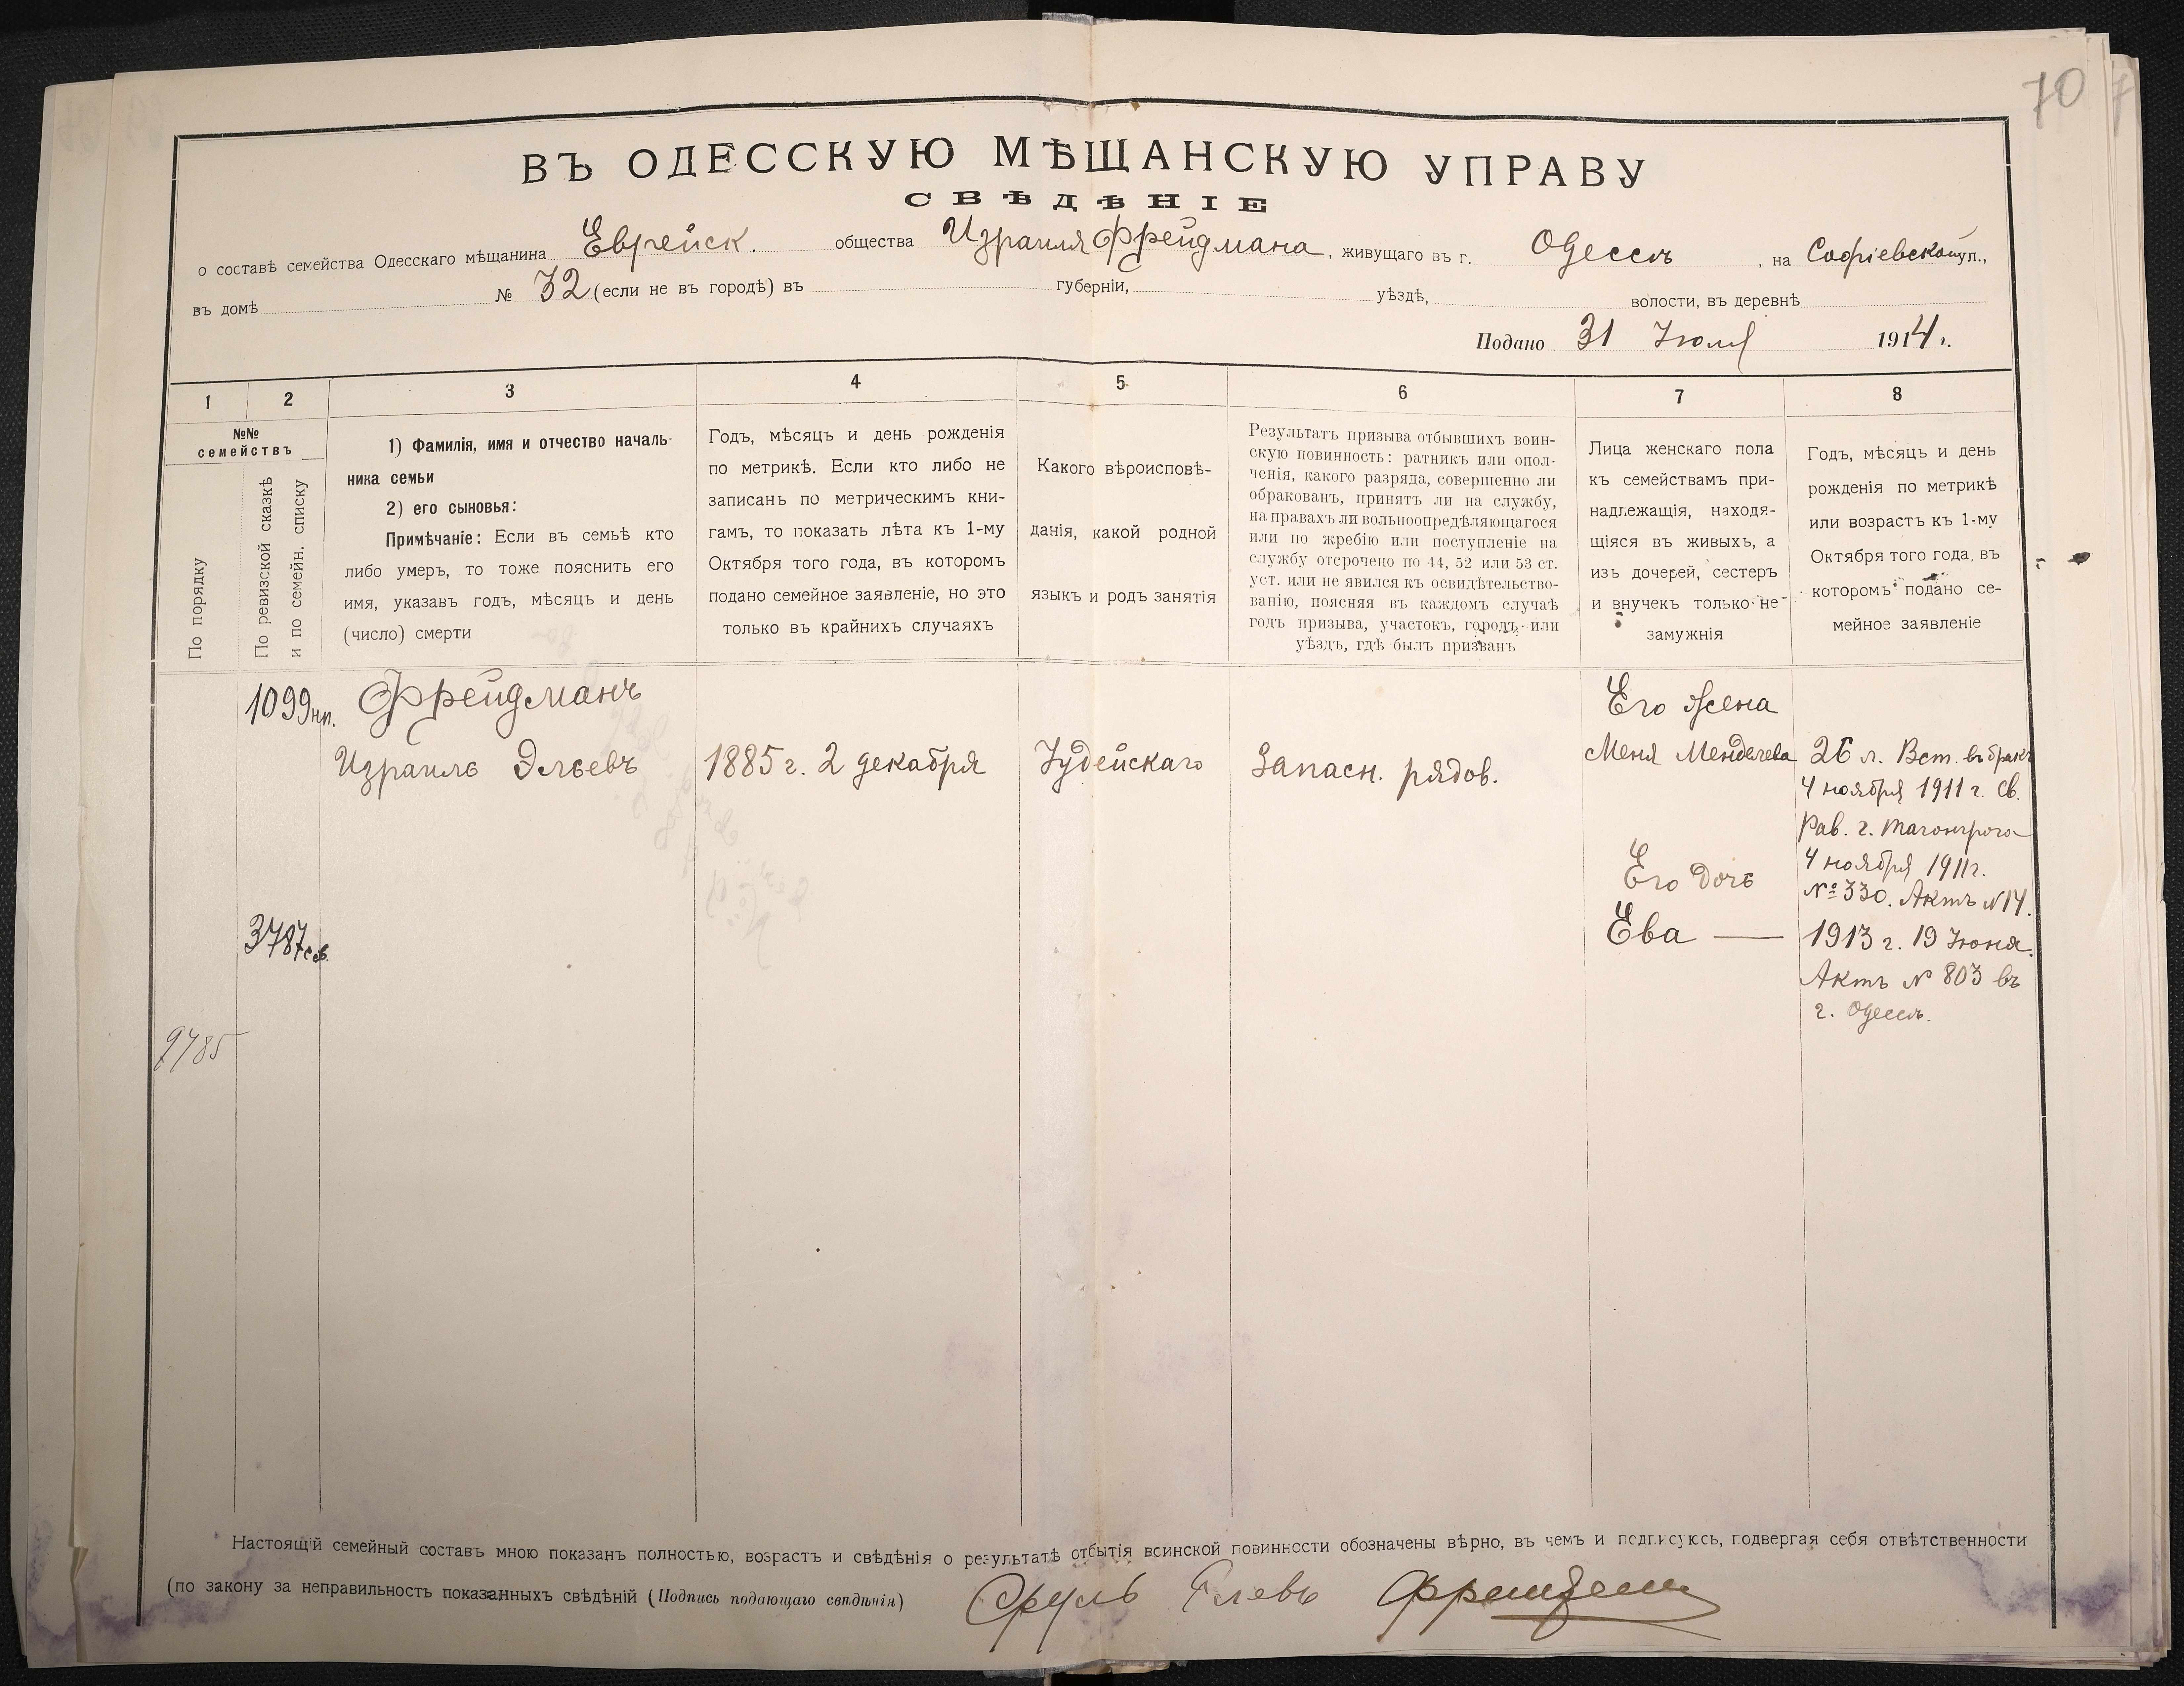 70
ВЪ ОДЕССКУЮ МѢЩАНСКУЮ УПРАВУ
СВѢДѢНІЕ
о составѣ семейства Одесскаго мѣщанина Еврейск. общества Израиля Фрейдмана, живущаго въ г. Одессѣ, на Софіевской ул.,
въ домѣ № 32 (если не въ городѣ) въ губерніи, уѣздѣ, волости, въ деревнѣ
Подано 31 Іюля 1914 г.
1 2 3 4 5 6 7 8
№№
семействъ
По порядку
По ревизской сказкѣ
и по семейн. списку
1) Фамилія, имя и отчество началь-
ника семьи
2) его сыновья:
Примѣчаніе: Если въ семьѣ кто
либо умеръ, то тоже пояснить его
имя, указавъ годъ, мѣсяцъ и день
(число) смерти
Годъ, мѣсяцъ и день рожденія
по метрикѣ. Если кто либо не
записанъ по метрическимъ кни-
гамъ, то показать лѣта къ 1-му
Октября того года, въ которомъ
подано семейное заявленіе, но это
только въ крайнихъ случаяхъ
Какого вѣроисповѣ-
данія, какой родной
языкъ и родъ занятія
Результатъ призыва отбывшихъ воин-
скую повинность: ратникъ или опол-
ченія, какого разряда, совершенно ли
обракованъ, принятъ ли на службу,
на правахъ ли вольноопредѣляющагося
или по жребію или поступленіе на
службу отсрочено по 44, 52 или 53 ст.
уст. или не явился къ освидѣтельство-
ванію, поясняя въ каждомъ случаѣ
годъ призыва, участокъ, городъ или
уѣздъ, гдѣ былъ призванъ
Лица женскаго пола
къ семействамъ при-
надлежащія, находя-
щіяся въ живыхъ, а
изъ дочерей, сестеръ
и внучекъ только не-
замужнія
Годъ, мѣсяцъ и день
рожденія по метрикѣ
или возрастъ къ 1-му
Октября того года, въ
которомъ подано се-
мейное заявленіе
1099нп.
Фрейдманъ
Израиль Эльевъ
1885 г. 2 декабря
Іудейскаго
Запасн. рядов.
Его жена
Меня Менделева
26 л. Вст. въ бракъ
4 ноября 1911 г. Св.
Рав. г. Таганрога
4 ноября 1911 г.
№ 330. Актъ № 14.
Его дочь
3787св.
Ева —
1913 г. 19 Іюня.
Актъ № 803 въ
г. Одессѣ.
9785
Настоящій семейный составъ мною показанъ полностью, возрастъ и свѣдѣнія о результатѣ отбытія воинской повинности обозначены вѣрно, въ чемъ и подписуюсь, подвергая себя отвѣтственности
(по закону за неправильность показанныхъ свѣдѣній (Подпись подающаго свѣдѣнія) Сруль